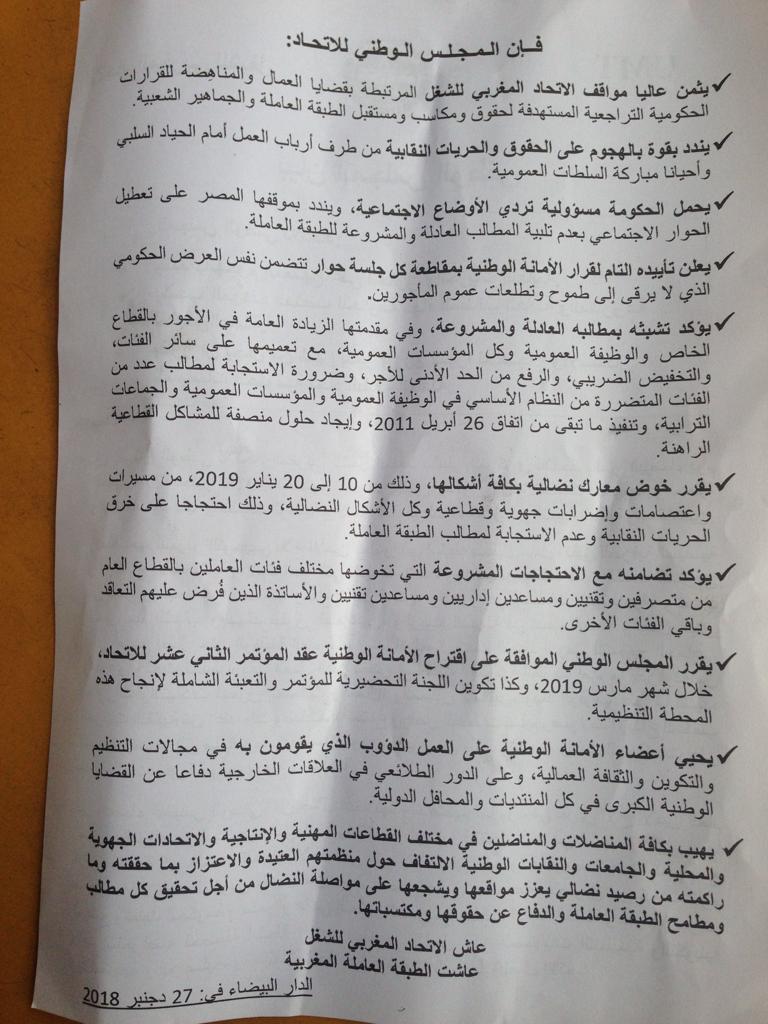 فإن المجلس الوطني للاتحاد:
✓ يثمن عاليا مواقف الاتحاد المغربي للشغل المرتبطة بقضايا العمال والمناهضة للقرارات
الحكومية التراجعية المستهدفة لحقوق ومكاسب ومستقبل الطبقة العاملة والجماهير الشعبية.
✓ يندد بقوة بالهجوم على الحقوق والحريات النقابية من طرف أرباب العمل أمام الحياد السلبي
وأحيانا مباركة السلطات العمومية.
✓ يحمل الحكومة مسؤولية تردي الأوضاع الاجتماعية، ويندد بموقفها المصر على تعطيل
الحوار الاجتماعي بعدم تلبية المطالب العادلة والمشروعة للطبقة العاملة.
✓ يعلن تأييده التام لقرار الأمانة الوطنية بمقاطعة كل جلسة حوار تتضمن نفس العرض الحكومي
الذي لا يرقى إلى طموح وتطلعات عموم المأجورين.
✓ يؤكد تشبثه بمطالبه العادلة والمشروعة، وفي مقدمتها الزيادة العامة في الأجور بالقطاع
الخاص والوظيفة العمومية وكل المؤسسات العمومية، مع تعميمها على سائر الفئات،
والتخفيض الضريبي، والرفع من الحد الأدنى للأجر، وضرورة الاستجابة لمطالب عدد من
الفئات المتضررة من النظام الأساسي في الوظيفة العمومية والمؤسسات العمومية والجماعات
الترابية، وتنفيذ ما تبقى من اتفاق 26 أبريل 2011، وإيجاد حلول منصفة للمشاكل القطاعية
الراهنة.
✓ يقرر خوض معارك نضالية بكافة أشكالها، وذلك من 10 إلى 20 يناير 2019، من مسيرات
واعتصامات وإضرابات جهوية وقطاعية وكل الأشكال النضالية، وذلك احتجاجا على خرق
الحريات النقابية وعدم الاستجابة لمطالب الطبقة العاملة.
✓ يؤكد تضامنه مع الاحتجاجات المشروعة التي تخوضها مختلف فئات العاملين بالقطاع العام
من متصرفين وتقنيين ومساعدين إداريين ومساعدين تقنيين والأساتذة الذين فُرض عليهم التعاقد
وباقي الفئات الأخرى.
✓ يقرر المجلس الوطني الموافقة على اقتراح الأمانة الوطنية عقد المؤتمر الثاني عشر للاتحاد،
خلال شهر مارس 2019، وكذا تكوين اللجنة التحضيرية للمؤتمر والتعبئة الشاملة لإنجاح هذه
المحطة التنظيمية.
✓ يحيي أعضاء الأمانة الوطنية على العمل الدؤوب الذي يقومون به في مجالات التنظيم
والتكوين والثقافة العمالية، وعلى الدور الطلائعي في العلاقات الخارجية دفاعا عن القضايا
الوطنية الكبرى في كل المنتديات والمحافل الدولية.
✓ يهيب بكافة المناضلات والمناضلين في مختلف القطاعات المهنية والإنتاجية والاتحادات الجهوية
والمحلية والجامعات والنقابات الوطنية الالتفاف حول منظمتهم العتيدة والاعتزاز بما حققته وما
راكمته من رصيد نضالي يعزز مواقعها ويشجعها على مواصلة النضال من أجل تحقيق كل مطالب
ومطامح الطبقة العاملة والدفاع عن حقوقها ومكتسباتها.
عاش الاتحاد المغربي للشغل
عاشت الطبقة العاملة المغربية
الدار البيضاء في: 27 دجنبر 2018